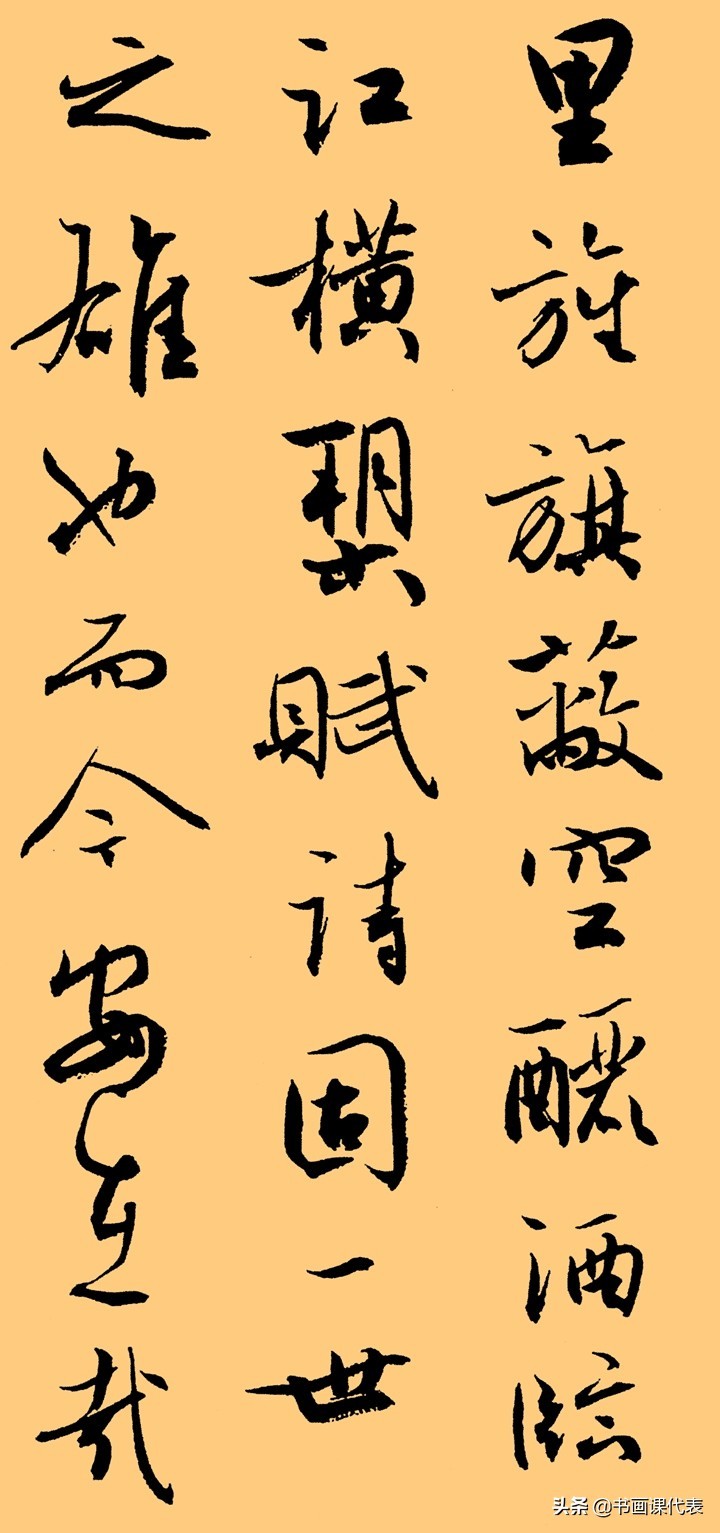 里旌旗蔽空釃酒臨
江橫槊賦詩固一世
之雄也而今安在哉
头条 @书画课代表